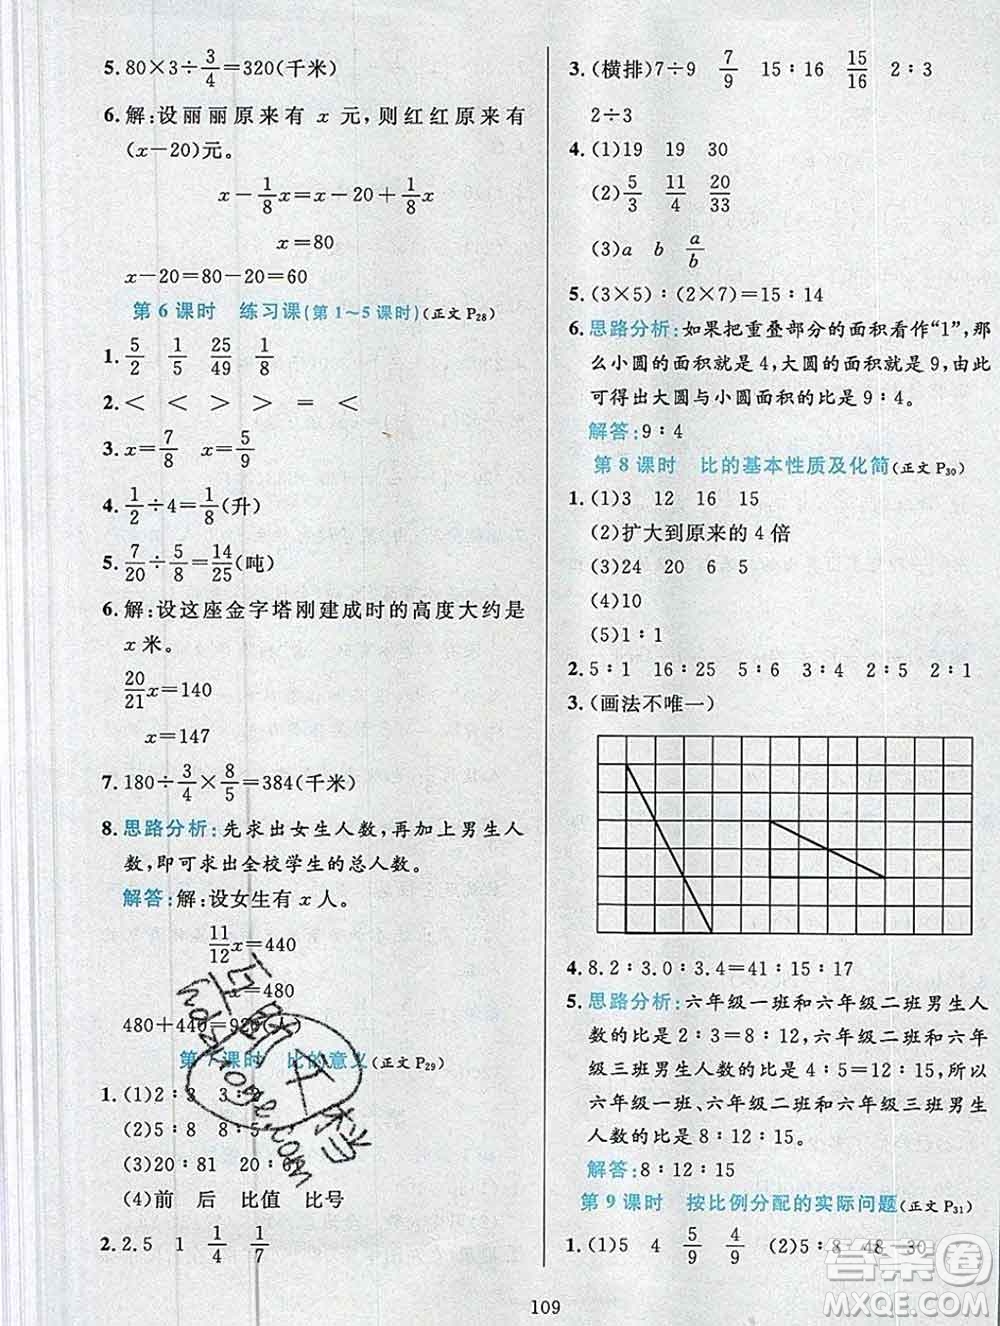 5. 80×3÷3/4=320(千米)
6. 解:设丽丽原来有 x 元,则红红原来有
(x－20)元。
x－1/8x=x－20＋1/8x
x=80
x－20=80－20=60
第 6 课时 练习课(第 1～5 课时)(正文 P28)
1. 5/2 1/5 25/49 1/8
2. ＜ ＜ ＞ ＞ = ＜
3. x=7/8 x=5/9
4. 1/2÷4=1/8(升)
5. 7/20÷5/8=14/25(吨)
6. 解:设这座金字塔刚建成时的高度大约是
x 米。
20/21x=140
x=147
7. 180÷3/4×8/5=384(千米)
8. 思路分析:先求出女生人数,再加上男生人
数,即可求出全校学生的总人数。
解答:解:设女生有 x 人。
11/12x=440
x=480
480＋440=920(人)
第 7 课时 比的意义(正文 P29)
1. (1)2∶3 3∶2
(2)5∶8 8∶5
(3)20∶81 20∶
(4)前 后 比值 比号
2. 2.5 1 1/4 1/7
3. (横排)7÷9 7/9 15∶16 15/16 2∶3
2÷3
4. (1)19 19 30
(2)5/3 11/4 20/33
(3)a b a/b
5. (3×5)∶(2×7)=15∶14
6. 思路分析:如果把重叠部分的面积看作“1”,那
么小圆的面积就是 4,大圆的面积就是 9,由此
可得出大圆与小圆面积的比是 9∶4。
解答:9∶4
第 8 课时 比的基本性质及化简(正文 P30)
1. (1)3 12 16 15
(2)扩大到原来的 4 倍
(3)24 20 6 5
(4)10
(5)1∶1
2. 5∶1 16∶25 5∶6 3∶4 2∶5 2∶1
3. (画法不唯一)
4. 8.2∶3.0∶3.4=41∶15∶17
5. 思路分析:六年级一班和六年级二班男生人
数的比是 2∶3=8∶12,六年级二班和六年级
三班男生人数的比是 4∶5=12∶15,所以
六年级一班、六年级二班和六年级三班男生
人数的比是 8∶12∶15。
解答:8∶12∶15
第 9 课时 按比例分配的实际问题(正文 P31)
1. (1)5 4 5/9 4/9 (2)5∶8 48 30
109
答案圈
MXQE.COM